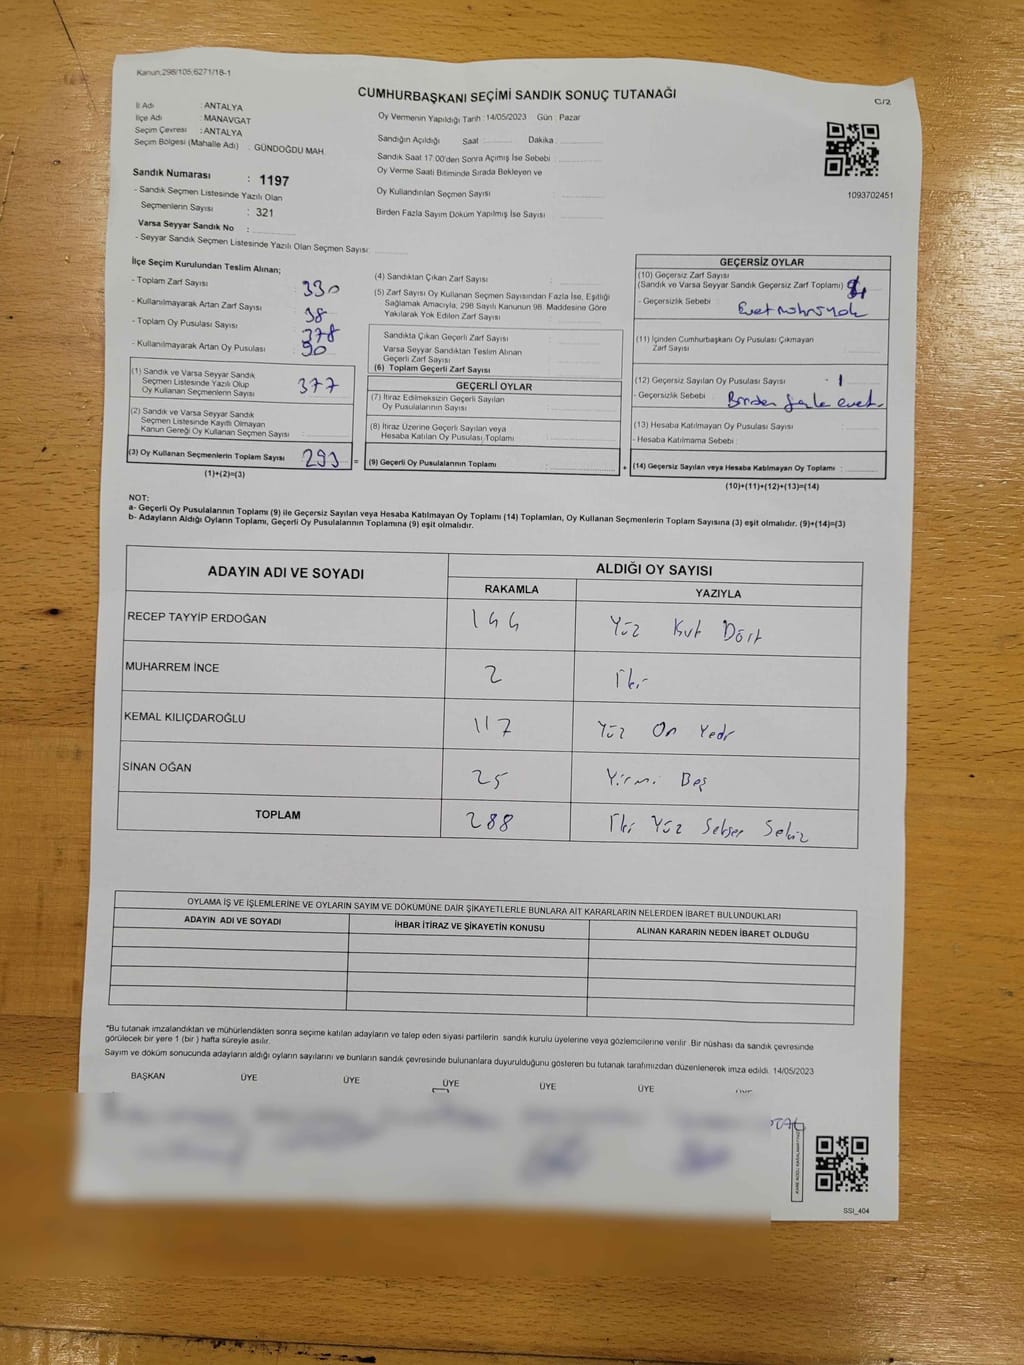 Kanun:298/105;6271/18-1
CUMHURBAŞKANI SEÇİMİ SANDIK SONUÇ TUTANAĞI
C/2
İl Adı : ANTALYA
İlçe Adı : MANAVGAT
Seçim Çevresi : ANTALYA
Seçim Bölgesi (Mahalle Adı) : GÜNDOĞDU MAH.
Sandık Numarası : 1197
- Sandık Seçmen Listesinde Yazılı Olan
Seçmenlerin Sayısı : 321
Varsa Seyyar Sandık No :
- Seyyar Sandık Seçmen Listesinde Yazılı Olan Seçmen Sayısı:
Oy Vermenin Yapıldığı Tarih : 14/05/2023 Gün : Pazar
Sandığın Açıldığı Saat : Dakika :
Sandık Saat 17:00'den Sonra Açımış İse Sebebi :
Oy Verme Saati Bitiminde Sırada Bekleyen ve
Oy Kullandırılan Seçmen Sayısı :
Birden Fazla Sayım Döküm Yapılmış İse Sayısı :
1093702451
İlçe Seçim Kurulundan Teslim Alınan;
- Toplam Zarf Sayısı : 330
- Kullanılmayarak Artan Zarf Sayısı : 38
- Toplam Oy Pusulası Sayısı : 378
- Kullanılmayarak Artan Oy Pusulası : 90
(1) Sandık ve Varsa Seyyar Sandık
Seçmen Listesinde Yazılı Olup
Oy Kullanan Seçmenlerin Sayısı : 377
(2) Sandık ve Varsa Seyyar Sandık
Seçmen Listesinde Kayıtlı Olmayan
Kanun Gereği Oy Kullanan Seçmen Sayısı :
(3) Oy Kullanan Seçmenlerin Toplam Sayısı : 293 =
(1)+(2)=(3)
(4) Sandıktan Çıkan Zarf Sayısı :
(5) Zarf Sayısı Oy Kullanan Seçmen Sayısından Fazla İse, Eşitliği
Sağlamak Amacıyla, 298 Sayılı Kanunun 98. Maddesine Göre
Yakılarak Yok Edilen Zarf Sayısı :
Sandıkta Çıkan Geçerli Zarf Sayısı :
Varsa Seyyar Sandıktan Teslim Alınan
Geçerli Zarf Sayısı :
(6) Toplam Geçerli Zarf Sayısı :
GEÇERLİ OYLAR
(7) İtiraz Edilmeksizin Geçerli Sayılan
Oy Pusulalarının Sayısı :
(8) İtiraz Üzerine Geçerli Sayılan veya
Hesaba Katılan Oy Pusulası Toplamı :
(9) Geçerli Oy Pusulalarının Toplamı : +
GEÇERSİZ OYLAR
(10) Geçersiz Zarf Sayısı
(Sandık ve Varsa Seyyar Sandık Geçersiz Zarf Toplamı) :
- Geçersizlik Sebebi : Evet mührü yok
(11) İçinden Cumhurbaşkanı Oy Pusulası Çıkmayan
Zarf Sayısı :
(12) Geçersiz Sayılan Oy Pusulası Sayısı : 1
- Geçersizlik Sebebi : Birden fazla evet.
(13) Hesaba Katılmayan Oy Pusulası Sayısı :
- Hesaba Katılmama Sebebi :
(14) Geçersiz Sayılan veya Hesaba Katılmayan Oy Toplamı :
(10)+(11)+(12)+(13)=(14)
NOT:
a- Geçerli Oy Pusulalarının Toplamı (9) ile Geçersiz Sayılan veya Hesaba Katılmayan Oy Toplamı (14) Toplamları, Oy Kullanan Seçmenlerin Toplam Sayısına (3) eşit olmalıdır. (9)+(14)=(3)
b- Adayların Aldığı Oyların Toplamı, Geçerli Oy Pusulalarının Toplamına (9) eşit olmalıdır.
ADAYIN ADI VE SOYADI
ALDIĞI OY SAYISI
RAKAMLA YAZIYLA
RECEP TAYYİP ERDOĞAN 144 Yüz Kırk Dört
MUHARREM İNCE 2 İki
KEMAL KILIÇDAROĞLU 117 Yüz On Yedi
SİNAN OĞAN 25 Yirmi Beş
TOPLAM 288 İki Yüz Seksen Sekiz
OYLAMA İŞ VE İŞLEMLERİNE VE OYLARIN SAYIM VE DÖKÜMÜNE DAİR ŞİKAYETLERLE BUNLARA AİT KARARLARIN NELERDEN İBARET BULUNDUKLARI
ADAYIN ADI VE SOYADI İHBAR İTİRAZ VE ŞİKAYETİN KONUSU ALINAN KARARIN NEDEN İBARET OLDUĞU
*Bu tutanak imzalandıktan ve mühürlendikten sonra seçime katılan adayların ve talep eden siyasi partilerin sandık kurulu üyelerine veya gözlemcilerine verilir. Bir nüshası da sandık çevresinde
görülecek bir yere 1 (bir ) hafta süreyle asılır.
Sayım ve döküm sonucunda adayların aldığı oyların sayılarını ve bunların sandık çevresinde bulunanlara duyurulduğunu gösteren bu tutanak tarafımızdan düzenlenerek imza edildi. 14/05/2023
BAŞKAN ÜYE ÜYE ÜYE ÜYE ÜYE
SSI_404